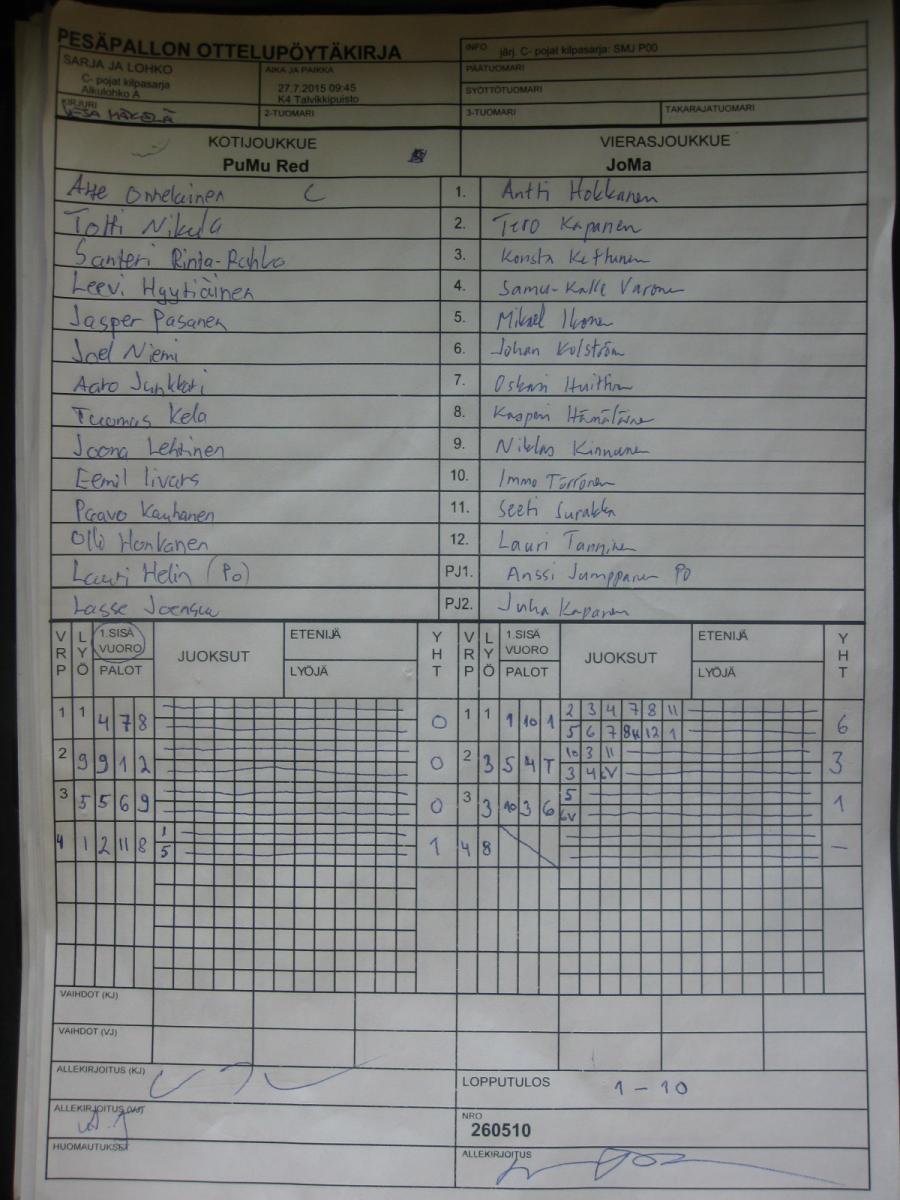 PESÄPALLON OTTELUPÖYTÄKIRJA
INFO järj. C- pojat kilpasarja: SMJ P00
SARJA JA LOHKO
C- pojat kilpasarja
Alkulohko A
AIKA JA PAIKKA
27.7.2015 09:45
K4 Talvikkipuisto
PÄÄTUOMARI
SYÖTTÖTUOMARI
KIRJURI
VESA MÄKELÄ
2-TUOMARI
3-TUOMARI
TAKARAJATUOMARI
KOTIJOUKKUE
PuMu Red
VIERASJOUKKUE
JoMa
Atte Onnelainen C 1. Antti Hokkanen
Totti Nikula 2. Tero Kapanen
Santeri Rinta-Rahko 3. Konsta Kettunen
Leevi Hyytiäinen 4. Samu-Kalle Varonen
Jasper Pasanen 5. Mikael Ikonen
Joel Niemi 6. Johan Kolström
Aaro Junkkari 7. Oskari
Tuomas Kela 8. Kasperi Hämäläinen
Joona Lehtinen 9. Niklas Kinnunen
Eemil Iivars 10. Immo Törrönen
Paavo Kauhanen 11. Seeti Surakka
Olli Honkanen 12. Lauri Tanninen
Lauri Helin (PO) PJ1. Anssi Jumppanen PO
Lasse Joensuu PJ2. Juha Kapanen
VRP LYÖ 1.SISÄ VUORO PALOT JUOKSUT ETENIJÄ LYÖJÄ YHT VRP LYÖ 1.SISÄ VUORO PALOT JUOKSUT ETENIJÄ LYÖJÄ YHT
1 1 4 7 8 0 1 1 1 10 1 2 3 4 7 8 11 6
5 6 7 12 1
2 9 9 1 2 0 2 3 5 4 T 10 3 11 3
3 4 6V
3 5 5 6 9 0 3 3 10 3 6 5 1
6V
4 1 2 11 8 1 1 4 8 –
5
VAIHDOT (KJ)
VAIHDOT (VJ)
ALLEKIRJOITUS (KJ)
LOPPUTULOS 1 – 10
ALLEKIRJOITUS (VJ)
NRO
260510
HUOMAUTUKSET
ALLEKIRJOITUS